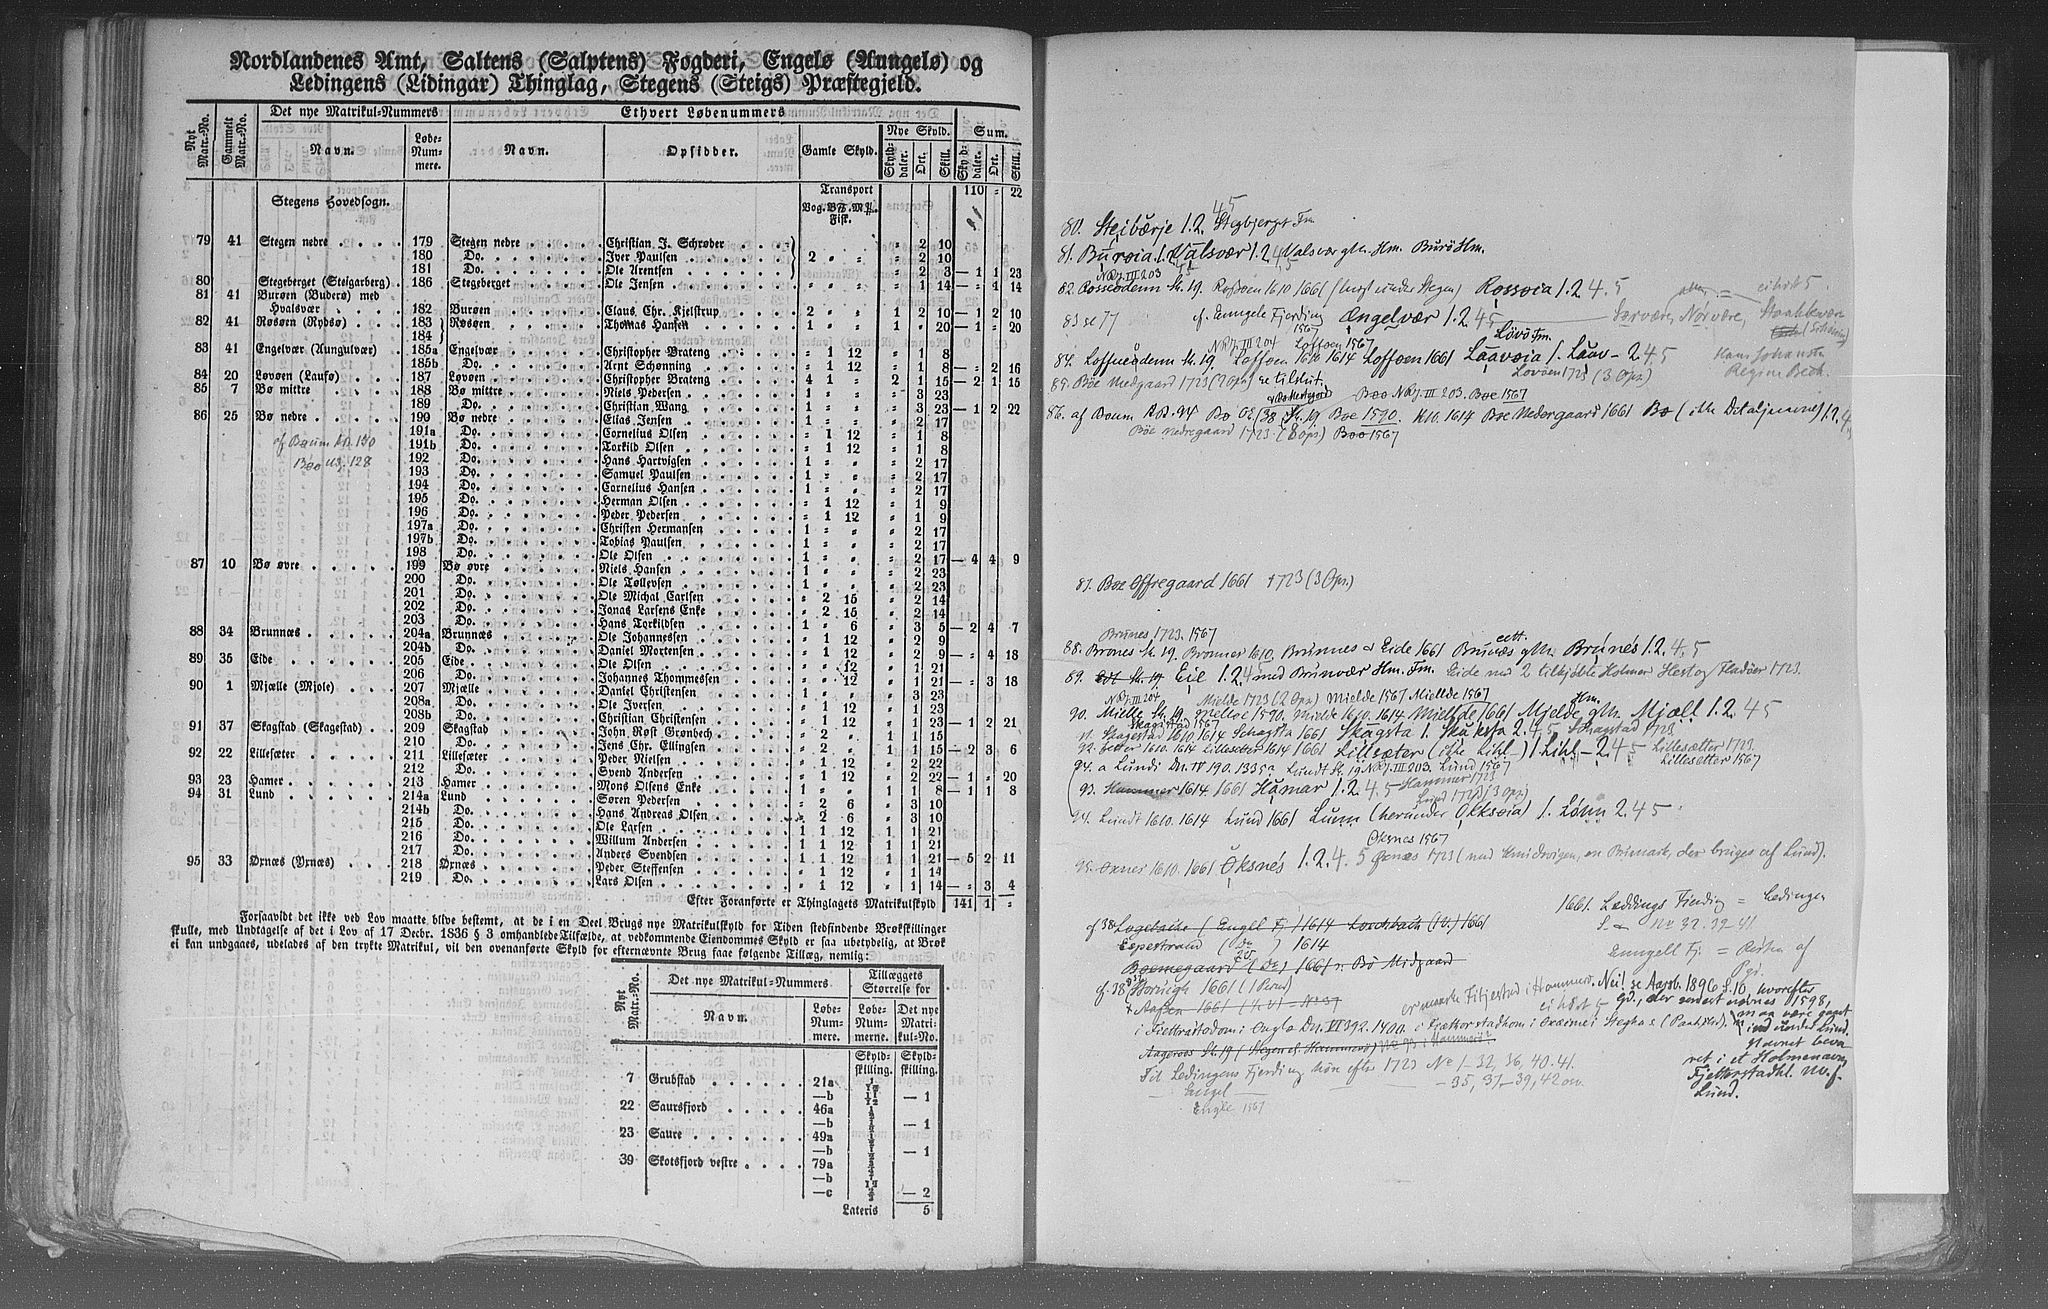 Nordlandenes Amt, Saltens (Salptens) Fogderi, Engelø (Aungelø) og
Ledingens (Lidingar) Thinglag, Stegens (Steigs) Præstegjeld.
Det nye Matrikul-Nummers Ethvert Løbenummers
Nyt Matr.-No. Gammelt Matr.-No. Navn. Løbe-Nummere. Navn. Opsidder. Gamle Skyld. Nye Skyld. Sum.
Skylddaler. Ort. Skill. Skylddaler. Ort. Skill.
Transport 110 = 22
Stegens Hovedsogn. Vog. Fisk.
79 41 Stegen nedre 179 Stegen nedre Christian J. Schrøder = 2 10
180 Do. Iver Paulsen 2 = = = 2 10
181 Do. Ole Arentsen = 2 3 — 1 1 23
80 Stegeberget (Steigarberg) 186 Stegeberget Ole Jensen = 1 14 — = 4 14
81 41 Burøen (Buderø) med
Hvalsvær 182 Burøen Claus Chr. Kjelstrup 2 = = 1 2 10 — 1 2 10
82 41 Røsøen (Rydsø) 183 Røsøen Thomas Hansen 1 = = 1 = 20 — 1 = 20
184
83 41 Engelvær (Aungulvær) 185a Engelvær Christopher Brateng = 1 12 = 1 8
185b Do. Arnt Schønning = 1 12 = 1 8 — = 2 16
84 20 Løvøen (Laufø) 187 Løvøen Christopher Brateng 4 1 = 2 1 15 — 2 1 15
85 7 Bø mittre 188 Bø mittre Niels Pedersen 1 = = = 3 23
189 Do. Christian Wang 1 = = = 3 23 — 1 2 22
86 25 Bø nedre 199 Bø nedre Elias Jensen 1 = = = 2 17
191a Do. Cornelius Olsen = 1 12 = 1 8
af Boum AB 180 191b Do. Torkild Olsen = 1 12 = 1 8
Bøo NJ. 128 192 Do. Hans Hartvigsen 1 = = = 2 17
193 Do. Samuel Paulsen 1 = = = 2 17
194 Do. Cornelius Hansen 1 = = = 2 17
195 Do. Herman Olsen = 1 12 = 1 9
196 Do. Peder Pedersen = 1 12 = 1 9
197a Do. Christen Hermansen 1 = = = 2 17
197b Do. Tobias Paulsen 1 = = = 2 17
198 Do. Ole Olsen 1 = = = 2 17 — 4 4 9
87 10 Bø øvre 199 Bø øvre Niels Hansen 1 = = = 2 23
200 Do. Ole Tollevsen 1 = = = 2 23
201 Do. Ole Michal Carlsen = 2 15 = 2 14
202 Do. Jonas Larsens Enke = 2 15 = 2 14
203 Do. Hans Torkildsen 1 = 6 = 3 5 — 2 4 7
88 34 Brunnæs 204a Brunnæs Ole Johannessen = 1 12 = 2 9
204b Do. Daniel Mortensen = 1 12 = 2 9 — = 4 18
89 35 Eide 205 Eide Ole Olsen = = 12 = 1 21
206 Do. Johannes Thommessen = = 12 = 1 21 — = 3 18
90 1 Mjælle (Mjole) 207 Mjælle Daniel Christensen 1 = = = 3 23
208a Do. Ole Iversen = 1 12 = 1 23
208b Do. Christian Christensen = 1 12 = 1 23 — 1 2 21
91 37 Skagstad (Skagestad) 209 Skagstad John Rost Grønbech = 2 = 1 1 15
210 Do. Jens Chr. Ellingsen = 2 = 1 1 15 — 2 3 6
92 22 Lillesæter 211 Lillesæter Peder Nielsen = 1 12 = 2 22
212 Do. Svend Andersen = 1 12 = 2 22 — 1 = 20
93 23 Hamer 213 Hamer Mons Olsens Enke 1 = = 1 1 8 — 1 1 8
94 31 Lund 214a Lund Søren Pedersen = 2 6 = 3 10
214b Do. Hans Andreas Olsen = 2 6 = 3 10
215 Do. Ole Larsen 1 1 12 1 1 21
216 Do. Willum Andersen 1 1 12 1 1 21
217 Do. Anders Svendsen 1 1 12 1 1 21 — 5 2 11
95 33 Ørnæs (Ørnæs) 218 Ørnæs Peder Steffensen = 1 12 = 1 14
219 Do. Lars Olsen = 1 12 = 1 14 — = 3 4
Efter Foranførte er Thinglagets Matrikulskyld 141 1 =
Forsaavidt det ikke ved Lov maatte blive bestemt, at de i en Deel Brugs nye Matrikulskyld for Tiden stedfindende Brøkskillinger
skulle, med Undtagelse af det i Lov af 17 Decbr. 1836 § 3 omhandlede Tilfælde, at vedkommende Eiendommes Skyld er saa ubetydelig, at Brøk
ei kan undgaaes, udelades af den trykte Matrikul, vil den ovenanførte Skyld for efternævnte Brug faae følgende Tillæg, nemlig:
Nyt Matr.-No. Det nye Matrikul-Nummers Tillæggets Størrelse for
Navn. Løbe-Nummere. Løbe-Nummerne. Det nye Matrikul-No.
Skyldskilling. Skyldskilling.
7 Grubstad 21a
—b — 1
22 Saursfjord 46a
—b — 1
23 Saure 49a
—b — 1
39 Skotsfjord vestre 79a
—b
—c — 2
Lateris 5
80. Steibærje 1.2. 45 Stegbjerget Fm.
81. Burøia 1. Valsvær 1.2.45 Valsvær gM. Hm. Burö Hm.
NRJ. III 203
82. Rosseødenn St. 19. Rossøen 1610 1661 (bugt under Stegen) Rossøia 1.2.4.5
83 se 77 cf. Eungels Fjerding 1567 Ængelvær 1.2.45 Sørvære, Norvære,
NRJ. III 204 Loffoen 1567 Løvö Fm.
84. Loffueødenn St. 19. Loffoen 1610 1614 Loffoen 1661 Laavøia 1. Laav- 2 45
Hans Johansen
Løvøen 1723 (3 Ops.) Regine Bech.
85. Böe Medgaard 1723 (2 Ops) se tilslut. Bøo NRJ. III 203. Boe 1567
86. af Boum AB. 94 Bø OE (38 St. 19 Boe 1590. 1610. 1614 Boe Nedergaard 1661 Bø (ikke Detaljnavne) 1.2.4
Böe Nedregaard 1723 (8 Ops) Boo 1567
87. Boe Offregaard 1661 1723 (3 Ops.)
Brunes 1723. 1567
88. Brones St. 19. Bronner 1610. Brunnes & Eide 1661 Brunæs gM. Brúnés 1.2.4.5
89. Eil 1.2.45 med Brunvær Hm. Fm. Eide med 2 tilhjølte Holmer Hestog Fladøer 1723.
NRJ. III 204 Mielde 1723 (2 Ops) Mielde 1567 Miellde 1567
90. Mielle St. 19. Mielloe 1590. Mielde 1610. 1614 Mielde 1661 Mjelde gM. Mjæll 1.2.45
Skagstad 1567
91. Skagestad 1610 1614 Schagsta 1661 Skagsta 1. Skaksta 2.45 Schagstad 1723
92. Setter 1610. 1614 Lillesetter 1614 1661 Lillsæter (ikke Lihl-) 1 Lihl- 2 45 Lillesætter 1723.
Lillesetter 1567
94. a Lundi Dn. IV 190. 1335a Lundt St. 19 NRJ. III 203. Lund 1567
93. Hammer 1614. 1661 Hamar 1.2.4.5 Hammer 1723
Lund 1723 (3 Ops)
94. Lundt 1610. 1614 Lund 1661 Lunn (herunder Okksøia) 1. Lönn 2 45
Oksnes 1567
95. Oxnes 1610. 1661 Oksnés 1.2.4.5 Øxnæs 1723 (med Smidvigen, en Rismark, der bruges af Lund).
1661. Læddings Fjerding = Ledingen
No 32. 39-41
Eungell Fj. = Resten af
Eepestrand 1614
Boemegaard 1661 : Bø Midgaard
Aasen 1661
i Fjettrastodom i Engle Dn. VI 392. 1400.
Til Ledingens Fjerding hön efter 1723 No 1-32, 36, 40. 41.
— Eungel — — 35, 37-39, 42 ow.
Engle 1567
Navnet beva-
ret i et Holmenavn
Fjetterstadhl. u. f.
Lund.